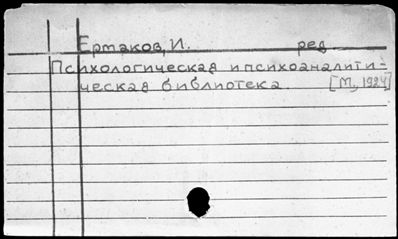 Ермаков, И. ред
Психологическая и психоаналити-
ческая библиотека. [М, 1924]